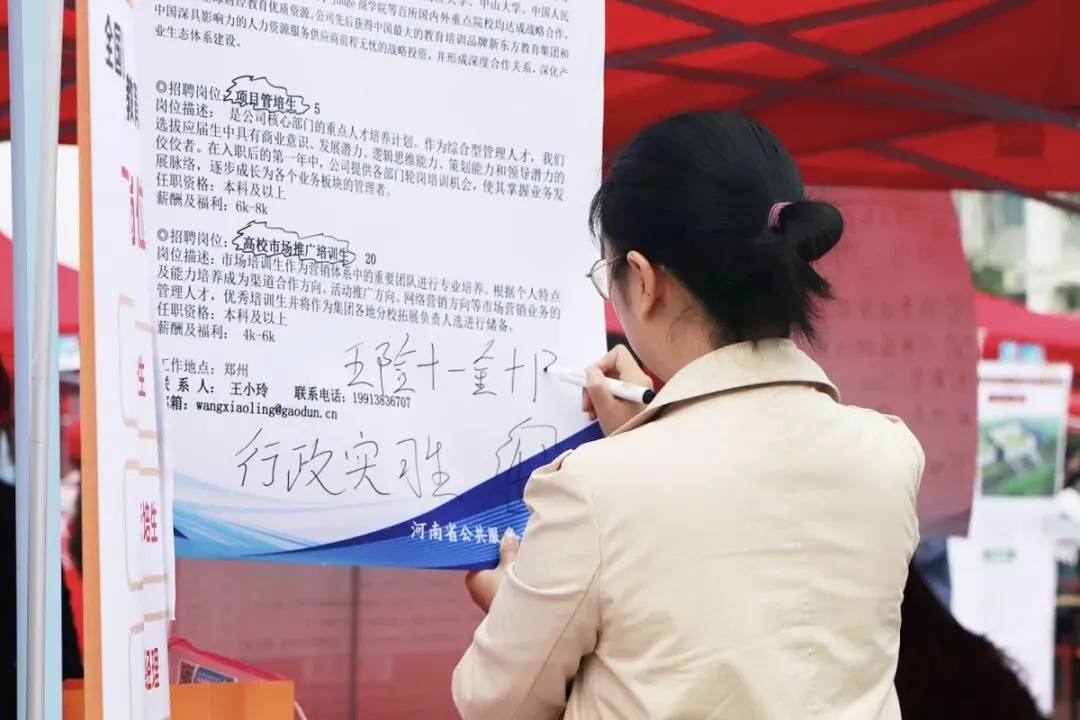 中国深具影响力的人力资源服务供应商前程无忧的战略投资，并形成深度合作关系，深化产
业生态体系建设。
◎招聘岗位：项目管培生 5
岗位描述： 是公司核心部门的重点人才培养计划。作为综合型管理人才，我们
选拔应届生中具有商业意识、发展潜力、逻辑思维能力、策划能力和领导潜力的
佼佼者。在入职后的第一年中，公司提供各部门轮岗培训机会，使其掌握业务发
展脉络，逐步成长为各个业务板块的管理者。
任职资格：本科及以上
薪酬及福利：6k-8k
◎招聘岗位：高校市场推广培训生 20
岗位描述：市场培训生作为营销体系中的重要团队进行专业培养。根据个人特点
及能力培养成为渠道合作方向、活动推广方向、网络营销方向等市场营销业务的
管理人才，优秀培训生并将作为集团各地分校拓展负责人选进行储备。
任职资格：本科及以上
薪酬及福利： 4k-6k
工作地点：郑州
联 系 人： 王小玲 联系电话：19913836707
邮箱：wangxiaoling@gaodun.cn
五险十一金十
行政实习生
河南省公共服
全国
教育
岗位
生
培生
经理